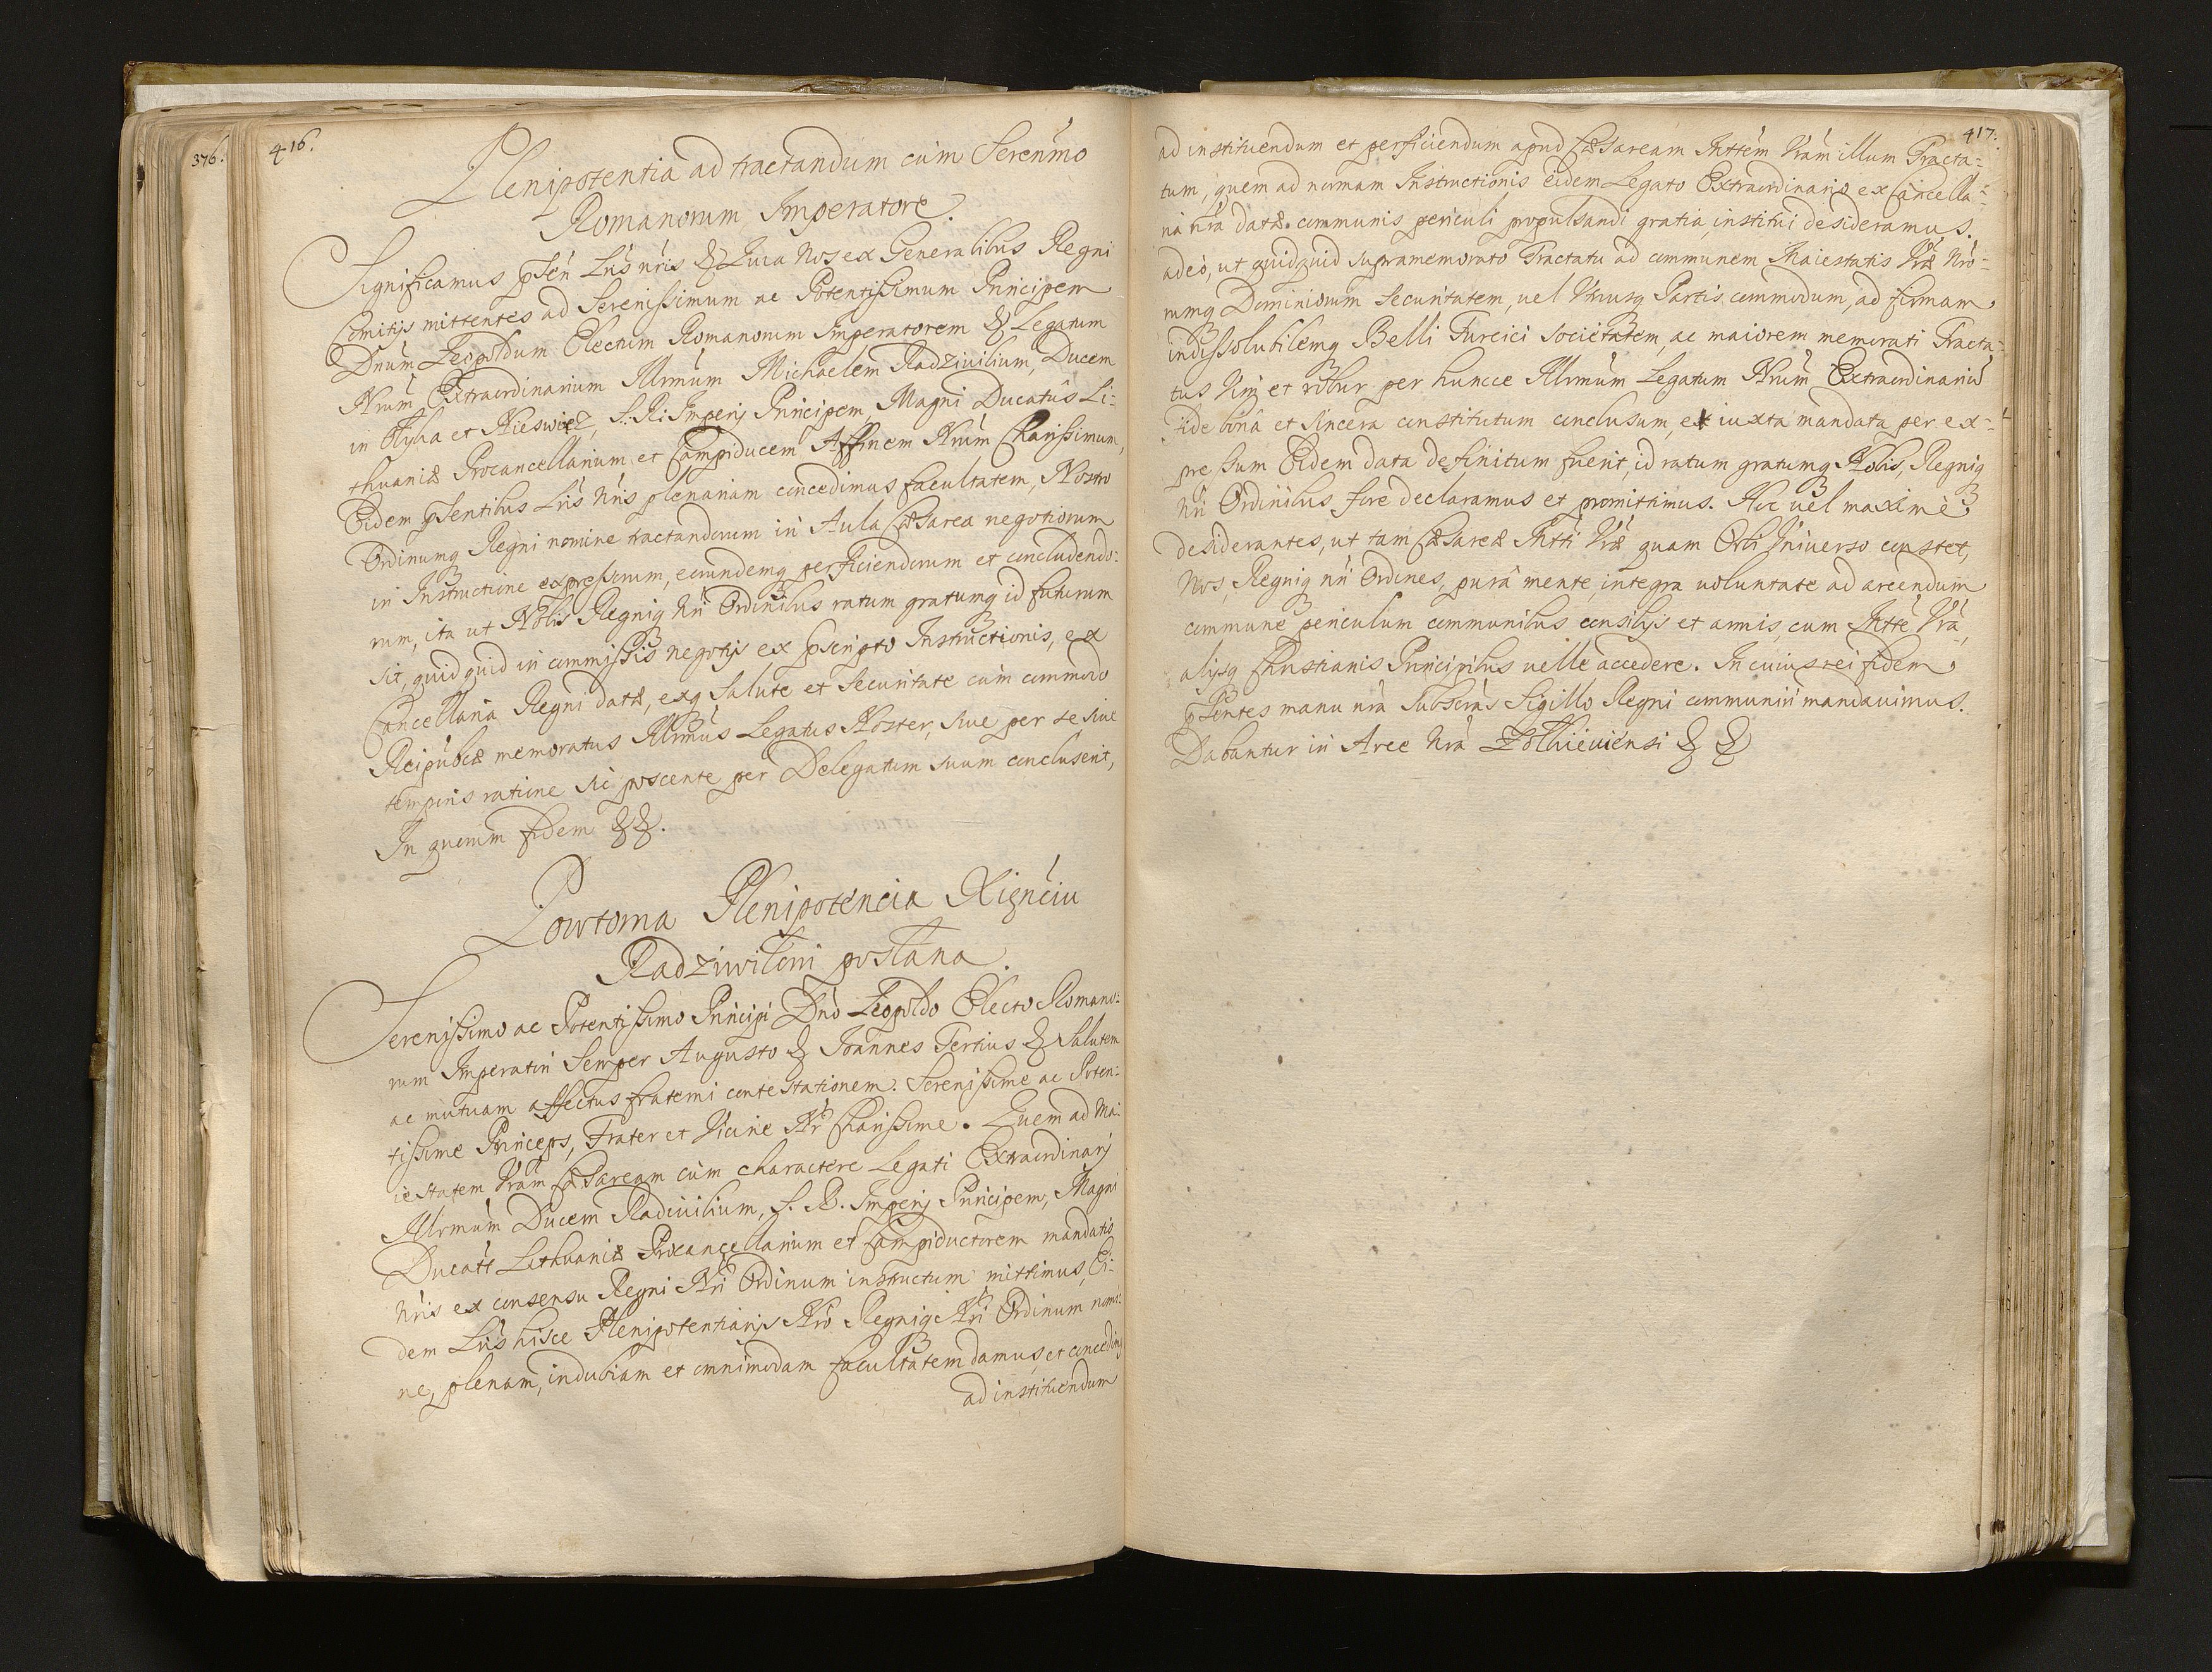 376.
416.
Plenipotentia ad tractandum cum Serenmo
Romanorum Imperatore.
Significamus psen Lris nris & Quia Nos ex Generalibus Regni
Comitijs mittentes ad Serenissimum ac Potentissimum Principem
Dnum Leopoldum Electum Romanorum Imperatorem & Legatum
Nrum Extraordinarium Illrmum Michaelem Radziuilium, Ducem
in Olyka et Nieswiez, S: R: Imperij Principem Magni Ducatûs Li-
thuaniæ Procancellarium et Campiducem Affinem Nrum Charissimum,
Eidem psentibus Lris Nris plenariam concedimus facultatem, Nostro
Ordinumq Regni nomine tractandorum in Aula Cæsarea negotiorum
in Instructione expressorum, eorundemq perficiendorum et concludendo-
rum, ita ut Nobis Regniq Nri Ordinibus ratum gratumq id futurum
sit, quidquid in commissis negotijs ex pscripto Instructionis, ex
Cancellaria Regni datæ, exq Salute et Securitate cum commodo
Reipublcæ memoratus Illrmus Legatus Noster, siue per se siue
temporis ratione sic poscente per Delegatum suum concluserit,
In quorum fidem &&.
Powtorna Plenipotencia Xięnciu
Radziwiłowi posłana.
Serenissimo ac Potentissimo Principi Dno Leopoldo Electo Romano-
rum Imperatori Semper Augusto & Ioannes Tertius & Salutem
ac mutuam affectus fraterni contestationem. Serenissime ac Poten-
tissime Princeps, Frater et Vicine Nr Charissime. Quem ad Ma-
iestatem Vram Cæsaream cum charactere Legati Extraordinarij
Illrmum Ducem Radiuilium, S. R. Imperij Principem, Magni
Ducats Lithuaniæ Procancellarium et Campiductorem mandatis
Nris ex consensu Regni Nri Ordinum instructum mittimus, Ei-
dem Lris hisce Plenipotentiarijs Nro Regniq Nri Ordinum nomi-
ne, plenam, indubiam et omnimodam facultatem damus et concedim9
ad instituendum
417.
ad instituendum et perficiendum apud Cæsaream Mttem Vram illum Tracta-
tum, quem ad normam Instructionis eidem Legato Extraordinario ex Cancella-
ria nra datæ communis periculi propulsandi gratia institui desideramus.
adeo, ut quidquid supramemorato Tractatu ad communem Maiestatis Vræ Nro-
rumq Dominiorum securitatem, uel Vtriusq Partis commodum, ad firmam
indissolubilemq Belli Turcici societatem, ac maiorem memorati Tracta-
tus Vim et robur per huncce Illrmum Legatum Nrum Extraordinariu
Fide bonâ et sincera constitutum conclusum, et iuxta mandata per ex-
pressum Eidem data definitum fuerit, id ratum gratumq Nobis, Regniq
Nri Ordinibus fore declaramus et promittimus. Hoc uel maximè
desiderantes, ut tam Cæsareæ Mtti Vræ quam Orbi Vniuerso constet,
Nos, Regniq nri Ordines, purâ mente, integra uoluntate ad arcendum
commune periculum communibus consilijs et armis, cum Mtte Vra,
alijsq Christianis Principibus uelle accedere. In cuius rei fidem
psentes manu nra Subscras Sigillo Regni communiri mandauimus.
Dabantur in Arce Nra Zolkieuiensi & &